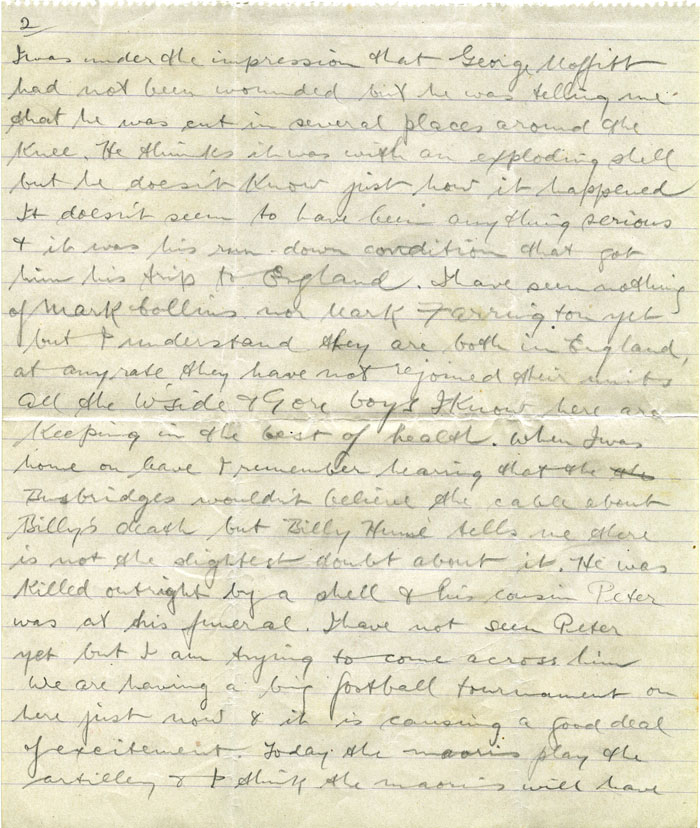 2
I was under the impression that George Moffitt
had not been wounded but he was telling me
that he was cut in several places around the
Knee. He thinks it was with an exploding shell
but he doesn't Know just how it happened
It doesn't seem to have been anything serious
& it was his run-down condition that got
him his trip to England. I have seen nothing
of Mark Collins nor Mark Farrington yet
but I understand they are both in England,
at anyrate they have not rejoined their units
All the W'side & Gore boys I Know here are
Keeping in the best of health. When I was
home on leave I remember hearing that the the
Busbridges wouldn't believe the cable about
Billy's death but Billy Hume tells me there
is not the slightest doubt about it. He was
Killed outright by a shell & his cousin Peter
was at his funeral. I have not seen Peter
yet but I am trying to come across him
We are having a big football tournament on
here just now & it is causing a good deal
of excitement. Today the maoris play the
artillery & I think the maoris will have